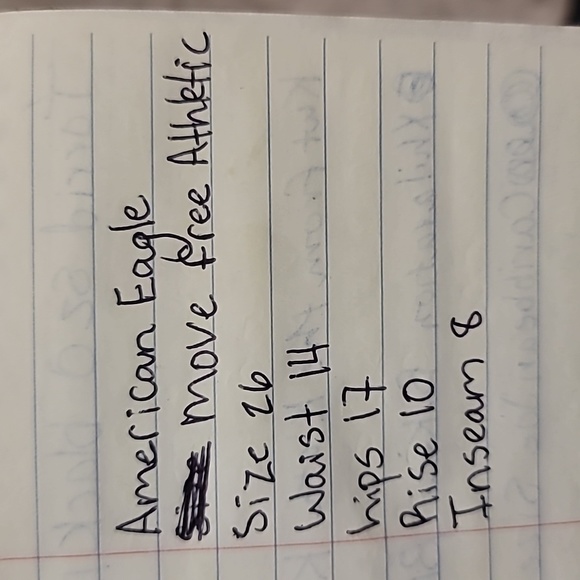 American Eagle
move free Athletic
Size 26
Waist 14
hips 17
Rise 10
Inseam 8